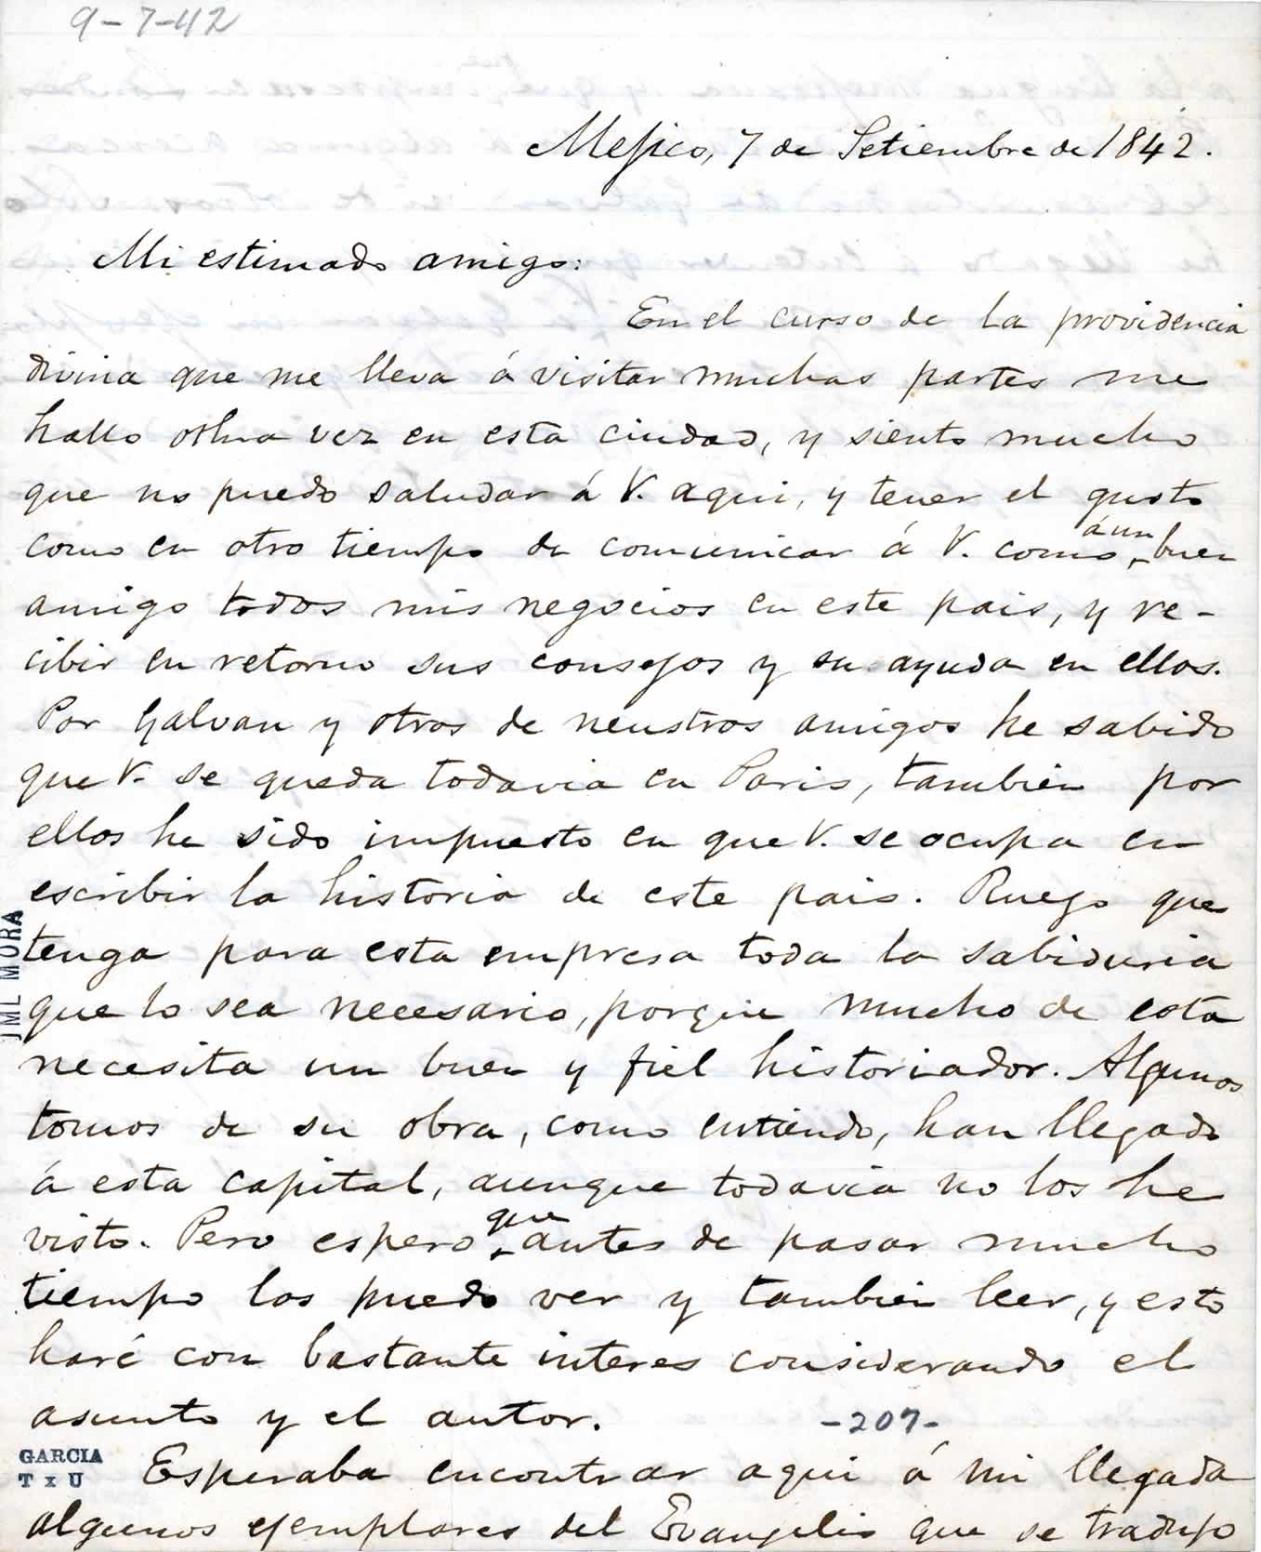 9-7-42
Mejico, 7 de Setiembre de 1842.
Mi estimado amigo:
En el curso de la providencia
divina que me lleva á visitar muchas partes me
hallo otra vez en esta ciudad, y siento mucho
que no puedo saludar á V. aqui, y tener el gusto
como en otro tiempo de comunicar á V. como á un buen
amigo todos mis negocios en este pais, y re-
cibir en retorno sus consejos y su ayuda en ellos.
Por Galvan y otros de neustros amigos he sabido
que V. se queda todavia en Paris, tambien por
ellos he sido impuesto en que V. se ocupa en
escribir la historia de este pais. Ruego que
tenga para esta empresa toda la sabiduria
que lo sea necesario, porque mucho de esta
necesita un buen y fiel historiador. Algunos
tomos de su obra, como entiendo, han llegado
á esta capital, aunque todavia no los he
visto. Pero espero que antes de pasar mucho
tiempo los puedo ver y tambien leer, y esto
haré con bastante interes considerando el
asunto y el autor.
-207-
Esperaba encontrar aqui á mi llegada
algunos ejemplares del Evangelio que se tradujo
JML MORA
GARCIA
T x U